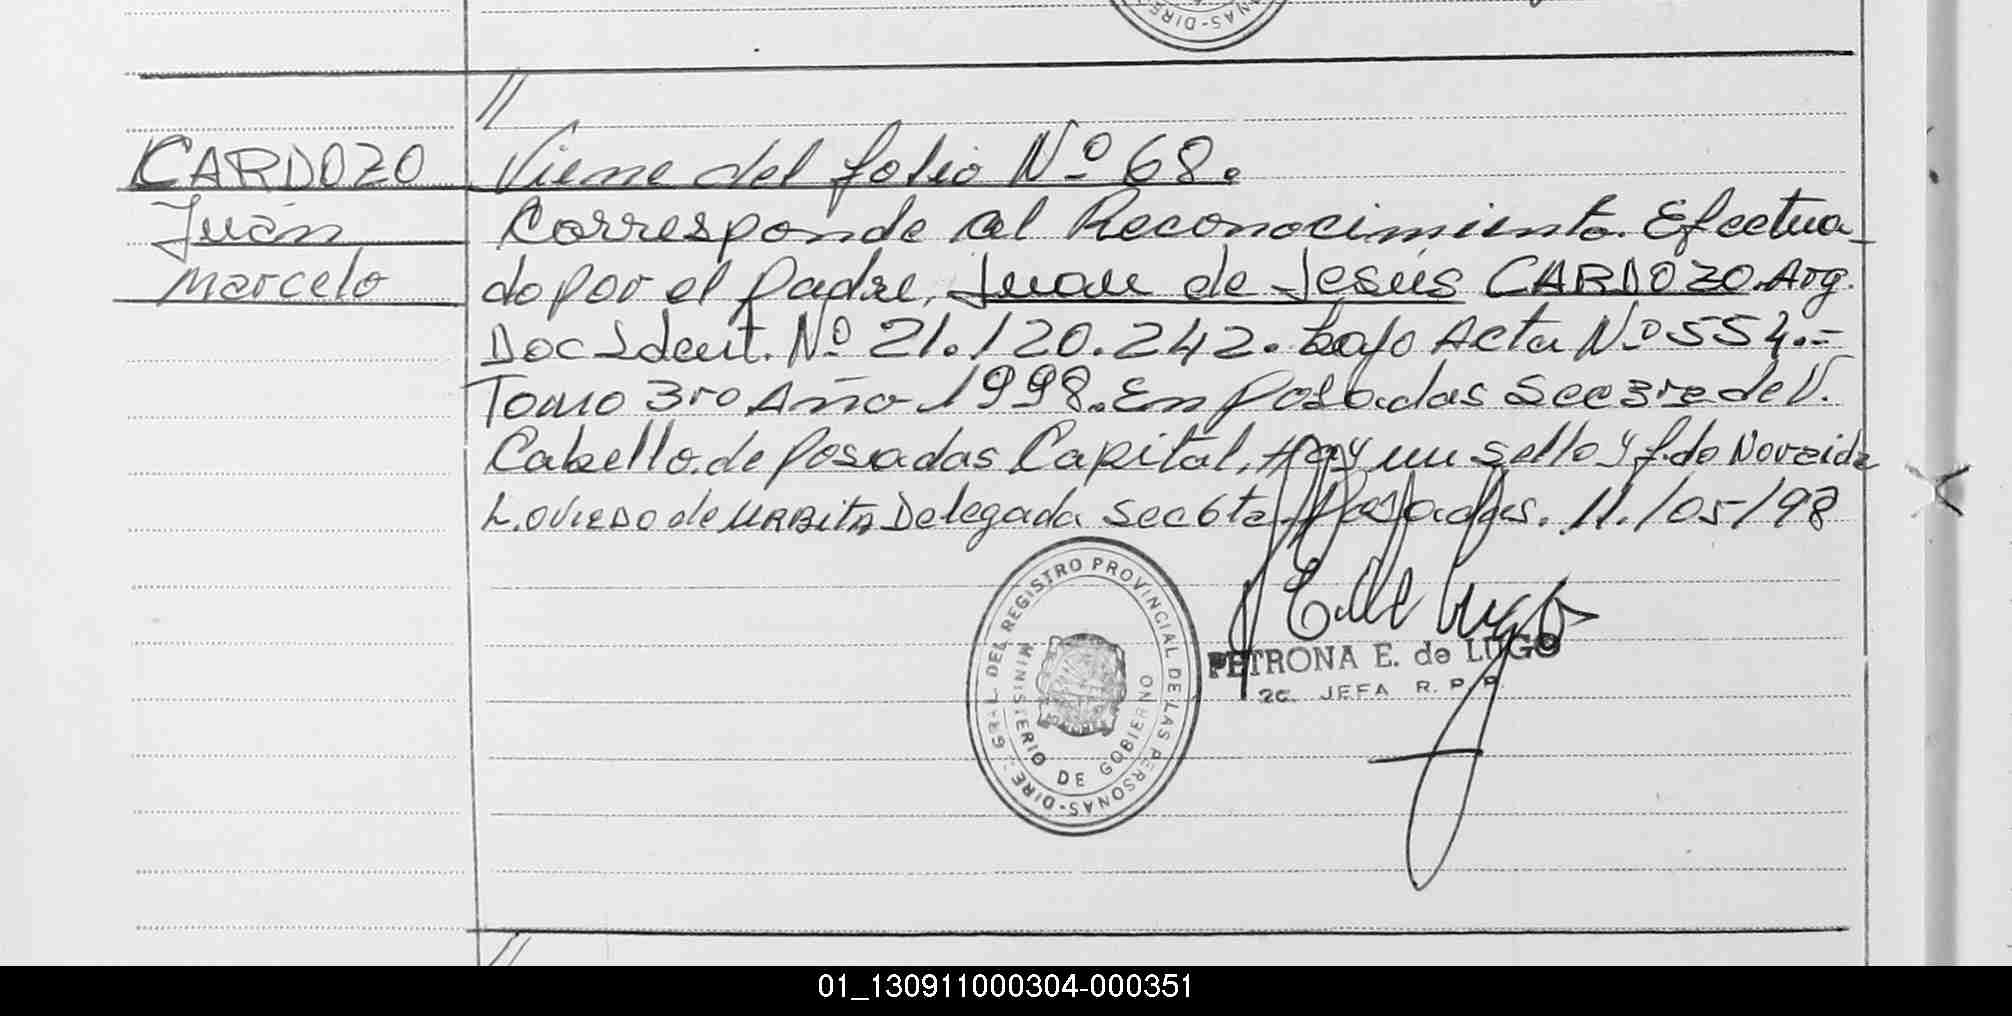 //
CARDOZO Viene del folio Nº 68.
Juan Corresponde al Reconocimiento. Efectua-
Marcelo do por el padre, Juan de Jesús CARDOZO. Arg.
Doc Ident. Nº 21.120.242. bajo Acta Nº 554.-
Tomo 3ro Año 1998. En Posadas Sec 3ra de V.
Cabello. de Posadas Capital, Hay un sello y f.do Noreida
L. OVIEDO de URBITA Delegada Sec 6ta Posadas. 11./05/98
DIRE. GRAL. DEL REGISTRO PROVINCIAL DE LAS PERSONAS
MINISTERIO DE GOBIERNO
E. de Lugo
PETRONA E. de LUGO
2a. JEFA R. P. P.
//
01_130911000304-000351